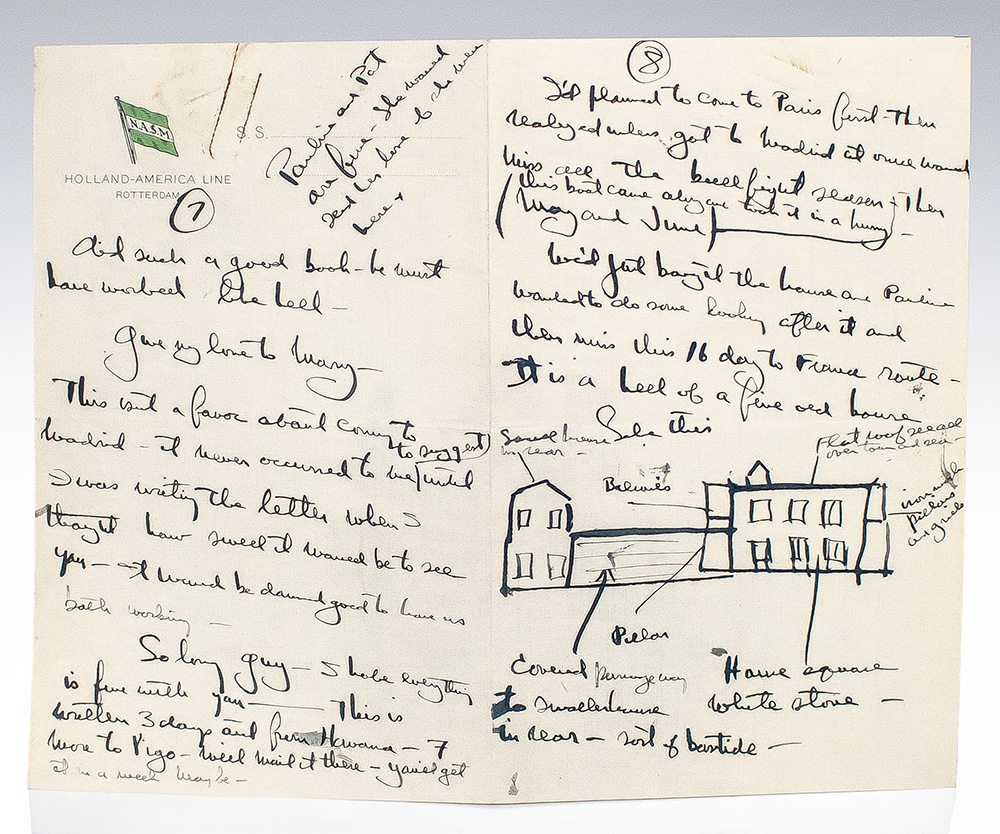 N.A.S.M.
S. S.
HOLLAND-AMERICA LINE
ROTTERDAM
Pauline and Pat
are fine - She would
send her love if she were
here x
7
did such a good book - he must
have worked like hell -
Give my love to Mary -
This isn't a favor about coming to
to suggest)
Madrid - it never occurred to me (until
I was writing the letter when I
thought how sweet it would be to see
you - It would be damned good to have us
both working -
So long guy - I hope everything
is fine with you This is
written 3 days out from Havana - 7
more to Vigo - We'll mail it there - you'll get
it in a week maybe -
8
I'd planned to come to Paris first - then
realized unless got to Madrid at once would
miss all the bullfight season - Then
this boat came along and took it in a hurry -
(May and June)
We'd just bought the house and Pauline
wanted to do some looking after it and
then miss this 16 day to France route -
It is a hell of a fine old house
Like this
Small house
in rear -
Flat roof see all
over town and sea -
Balconies
iron
Pillars
and grills
Pillar
Covered passageway
to smaller house
in rear - sort of bastide -
House square
white stone -